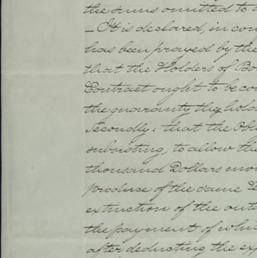 the sums omitted to
- It is declared, in con
has been prayed by the
that the Holders of Bo
Contract ought to be co
the guaranty they hold
Secondly: that the Obl
subsisting, to allow the
thousand Dollars mon
produce of the same
extinction of the outs
the payment of whi
after deducting the exp